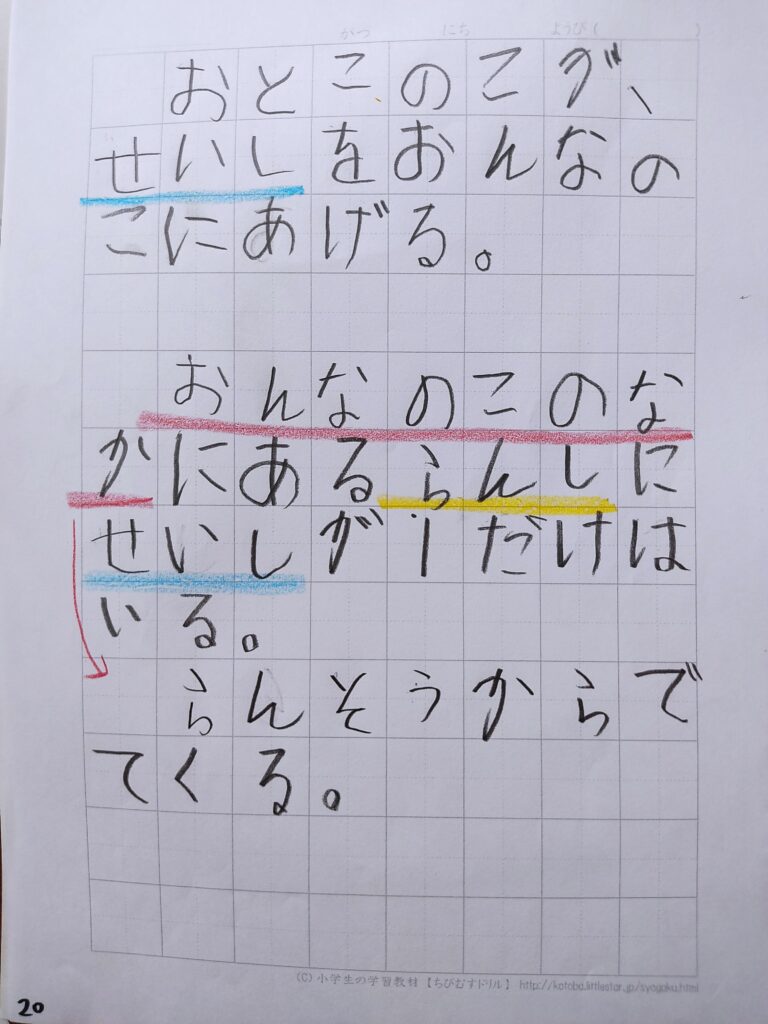 がつ にち ようび( )
おとこのこが、
せいしをおんなの
こにあげる。
おんなのこのな
かにあるらんしに
せいしが1だけは
いる。
らんそうからで
てくる。
(C) 小学生の学習教材【ちびむすドリル】 http://kotoba.littlestar.jp/syogaku.html
20